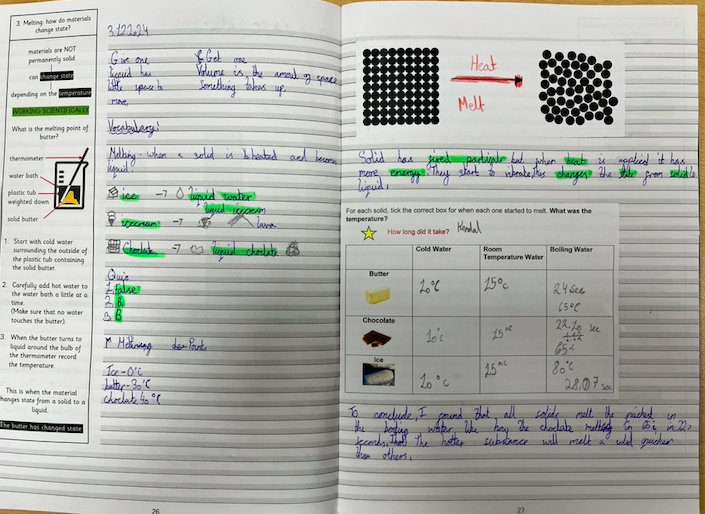 3. Melting: how do materials
change state?
materials are NOT
permanently solid
can change state
depending on the temperature
WORKING SCIENTIFICALLY
What is the melting point of
butter?
thermometer
water bath
plastic tub
weighted down
solid butter
1. Start with cold water
surrounding the outside of
the plastic tub containing
the solid butter.
2. Carefully add hot water to
the water bath a little at a
time.
(Make sure that no water
touches the butter)
3. When the butter turns to
liquid around the bulb of
the thermometer record
the temperature.
This is when the material
changes state from a solid to a
liquid.
The butter has changed state
3.12.2024
Give one
liquid has
little space to
move.
Get one
Volume is the amout of space
something takes up.
Vocabulary:
Melting - when a solid is heated and becomes
liquid.
ice → liquid water
icecream → liquid icecream
lava
Choclate → liquid choclate
Quiz
1. False
2. B
3. B
Points
Ice - 0°C
butter - 30°C
choclate 40°C
26
Heat
Melt
Solid has fixed particls but when heat is applied it has
more energy. They start to vibrate, this changes the state from solid to
liquid.
For each solid, tick the correct box for when each one started to melt. What was the
temperature?
How long did it take?
Cold Water
Room
Temperature Water
Boiling Water
Butter
10°C
15°C
24 sec
65°C
Chocolate
10°C
15°C
22.20 sec
65°C
Ice
10°C
15°C
80°C
28.07 sec
To conclude, I found that all solids melt the quickest in
the boiling water like how the choclate melting in 65°c in 22.
seconds, The hotter substance will melt a solid quicker
than others.
27